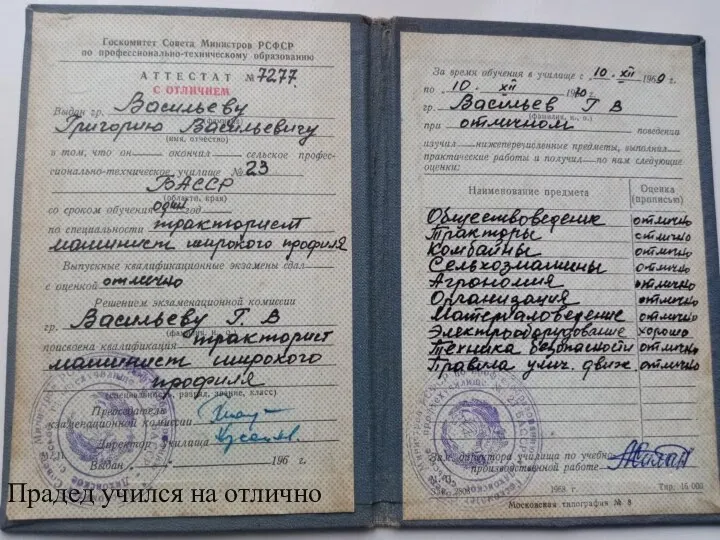 Госкомитет Совета Министров РСФСР
по профессионально-техническому образованию
АТТЕСТАТ № 7277
С ОТЛИЧИЕМ
Выдан гр. Васильеву
(фамилия)
Григорию Васильевичу
(имя, отчество)
в том, что он окончил сельское профес-
сионально-техническое училище № 23
БАССР
(области, края)
со сроком обучения один год
по специальности тракторист
машинист широкого профиля
Выпускные квалификационные экзамены сдал
с оценкой отлично
Решением экзаменационной комиссии
гр. Васильеву Г. В
(фамилия, и., о.)
присвоена квалификация тракторист
машинист широкого
профиля
(специальность, разряд, звание, класс)
Председатель
экзаменационной комиссии
Директор училища
Выдан 196 г.
Прадед учился на отлично
За время обучения в училище с 10. XII 1969 г.
по 10. XII 1970 г.
гр. Васильев Г В
(фамилия, и., о.)
при отличном поведении
изучил нижеперечисленные предметы, выполнил
практические работы и получил по ним следующие
оценки:
Наименование предмета Оценка (прописью)
Обществоведение отлично
Тракторы отлично
Комбайны отлично
Сельхозмашины отлично
Агрономия отлично
Организация отлично
Материаловедение отлично
Электрооборудование хорошо
Техника безопасности отлично
Правила улич. движ отлично
Зам. директора училища по учебно-
производственной работе
1968 г. Тир. 15 000
Московская типография № 8